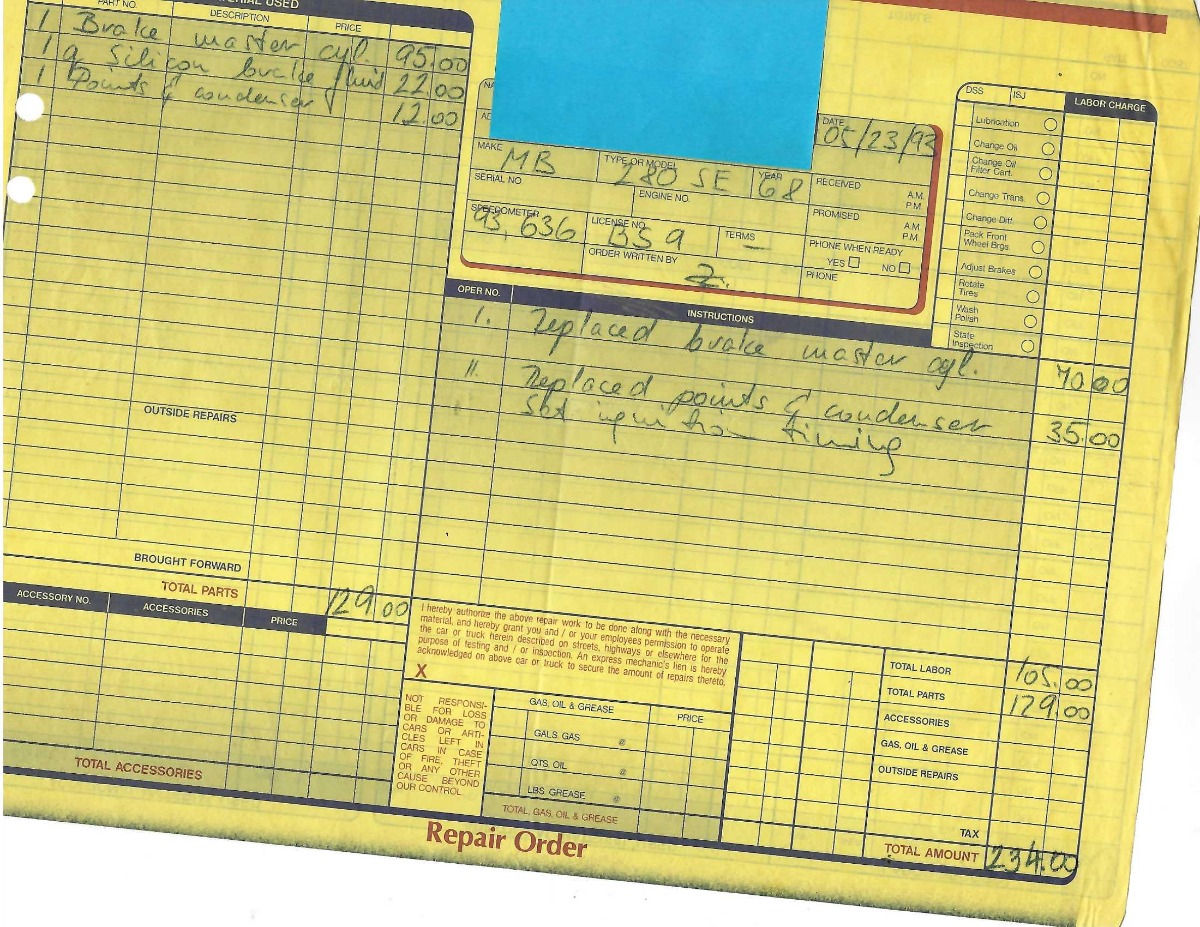 MATERIAL USED
PART NO. DESCRIPTION PRICE
1 Brake master cyl. 95.00
1 q Silicon brake fluid 22.00
1 Points & condenser 12.00
OUTSIDE REPAIRS
BROUGHT FORWARD
TOTAL PARTS 129.00
ACCESSORY NO. ACCESSORIES PRICE
TOTAL ACCESSORIES
DATE
05/23/93
MAKE TYPE OR MODEL YEAR RECEIVED A.M.
MB 280 SE 68 P.M.
SERIAL NO ENGINE NO. PROMISED A.M.
P.M.
SPEEDOMETER LICENSE NO. TERMS PHONE WHEN READY
93,636 BS9 –
YES NO
ORDER WRITTEN BY PHONE
Z.
DSS ISJ LABOR CHARGE
Lubrication
Change Oil
Change Oil
Filter Cart.
Change Trans.
Change Diff.
Pack Front
Wheel Brgs.
Adjust Brakes
Rotate
Tires
Wash
Polish
State
Inspection
OPER NO. INSTRUCTIONS
I. Replaced brake master cyl. 70.00
II. Replaced points & condenser
Set ignition timing 35.00
I hereby authorize the above repair work to be done along with the necessary
material, and hereby grant you and / or your employees permission to operate
the car or truck herein described on streets, highways or elsewhere for the
purpose of testing and / or inspection. An express mechanic's lien is hereby
acknowledged on above car or truck to secure the amount of repairs thereto.
X
NOT RESPONSI-
BLE FOR LOSS
OR DAMAGE TO
CARS OR ARTI-
CLES LEFT IN
CARS IN CASE
OF FIRE, THEFT
OR ANY OTHER
CAUSE BEYOND
OUR CONTROL
GAS, OIL & GREASE PRICE
GALS. GAS @
QTS. OIL @
LBS. GREASE @
TOTAL, GAS, OIL & GREASE
TOTAL LABOR 105.00
TOTAL PARTS 129.00
ACCESSORIES
GAS, OIL & GREASE
OUTSIDE REPAIRS
TAX
TOTAL AMOUNT 234.00
Repair Order